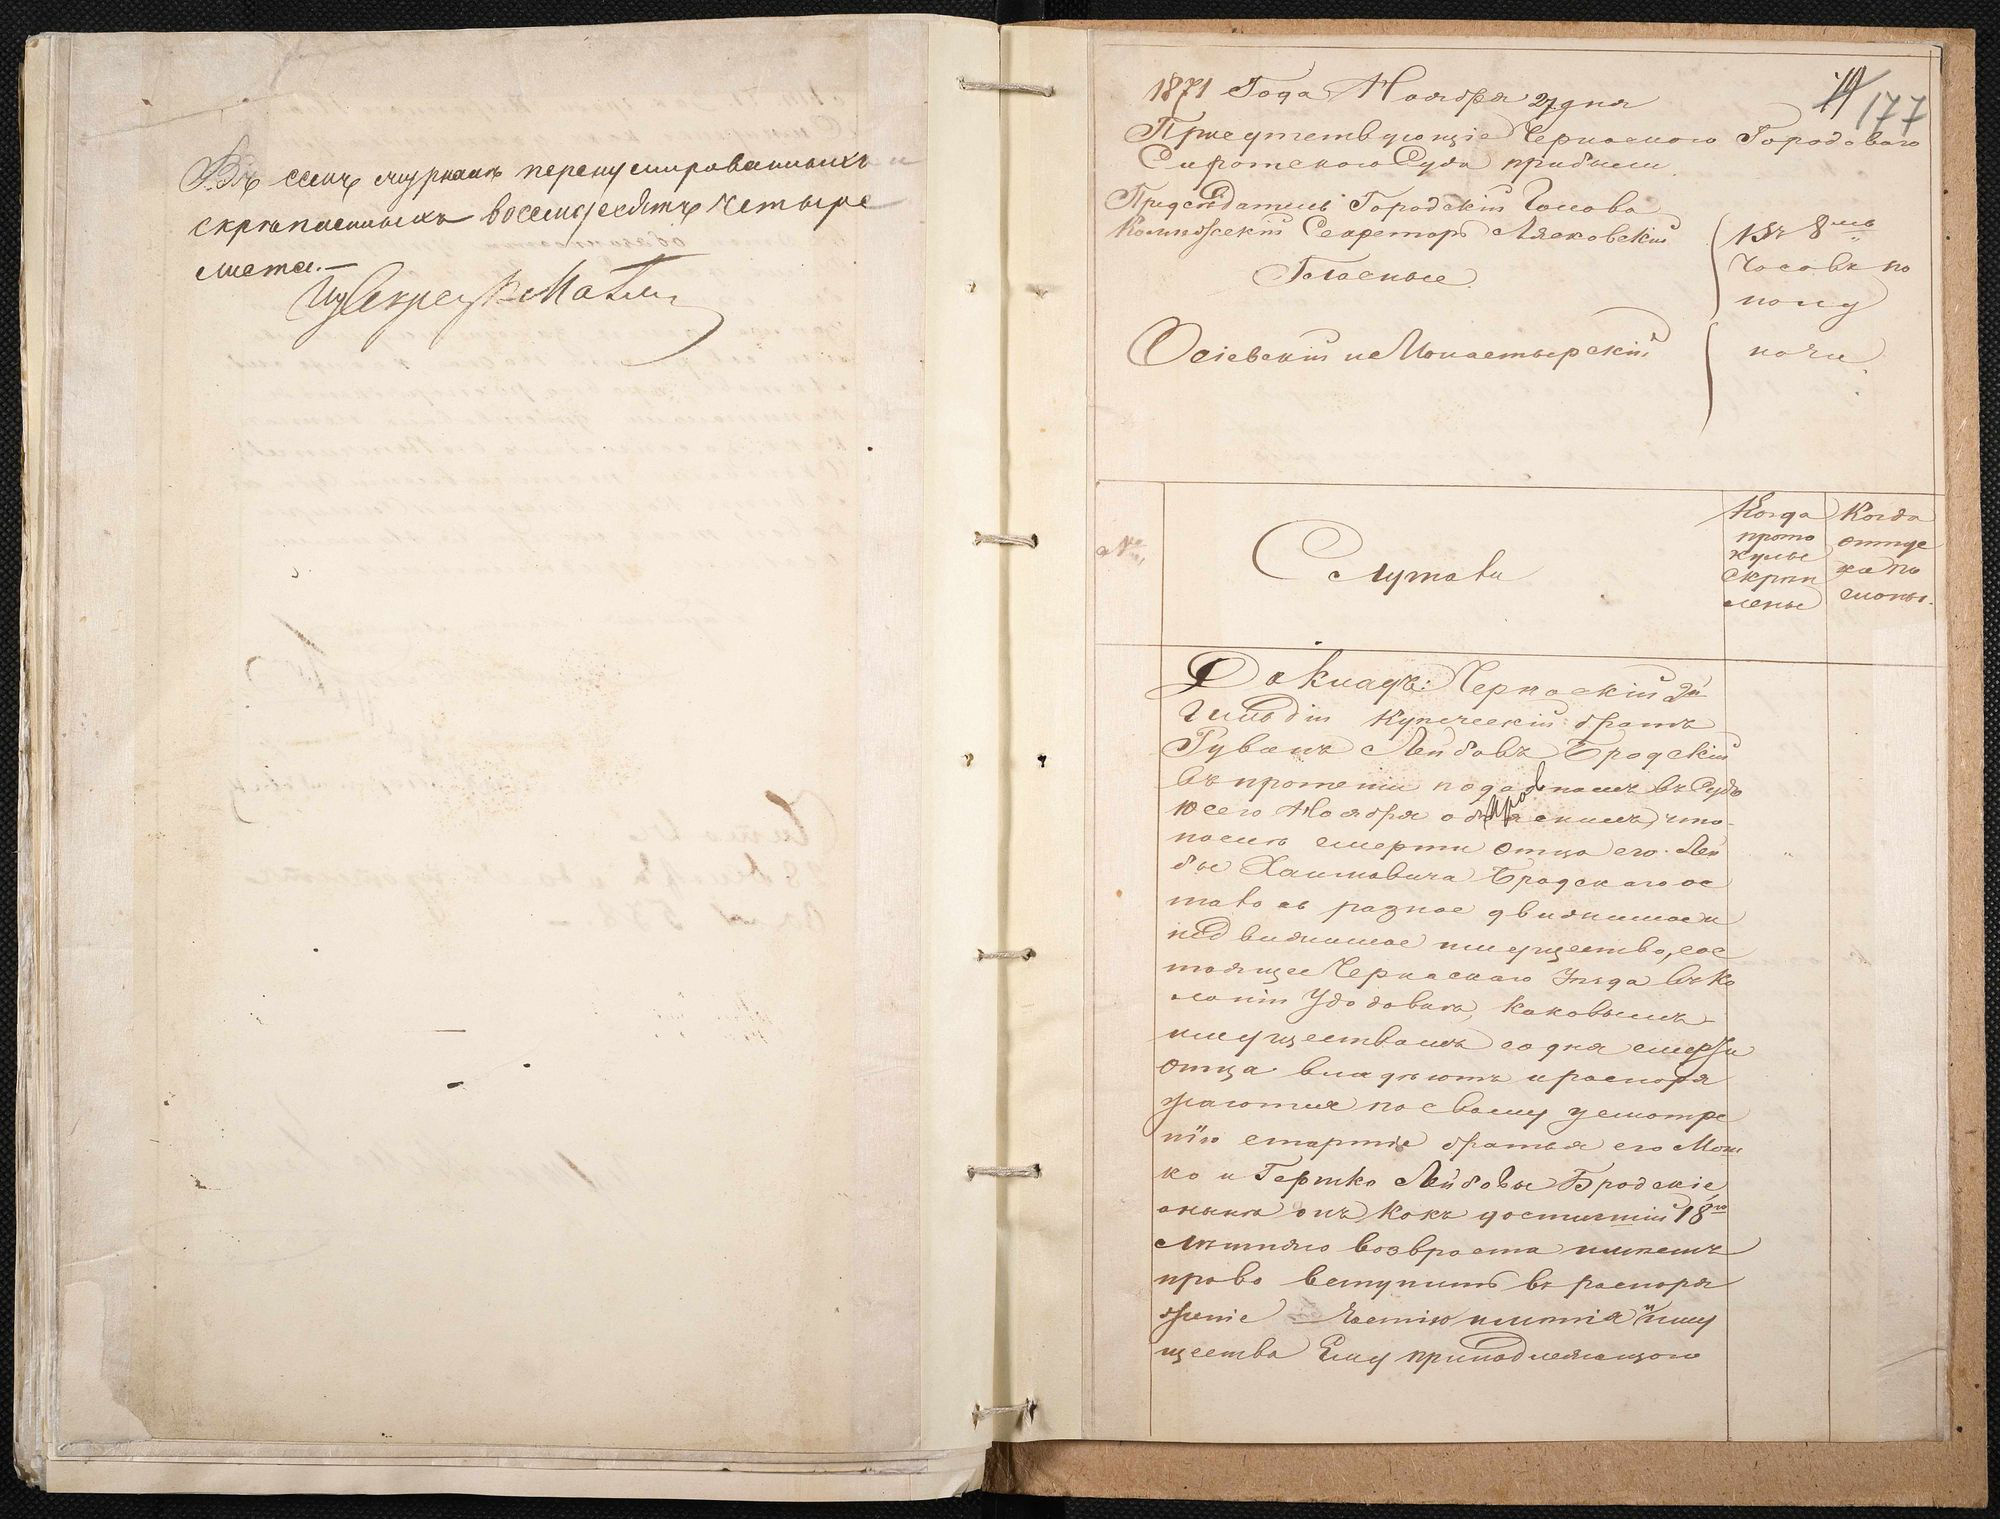 Въ семъ журналѣ перенумерованныхъ
скрѣпленныхъ восемьдесятъ четыре
листа.—
177
1871 Года Ноября 27 дня
Присутствующіе Черкаского Городоваго
Сиротского Суда прибыли
Председатель Городскій Голова
Колежскій Секретарь Лясковскій
Гласные
Осіевскій и Монастырскій
Въ 8 мь
часовъ по
полу
ночи.
№
Слушали
Когда
прото
кулы
скреп
лены
Когда
отпус
Докладъ: Черкаскій 2й
Гильдіи Купеческій братъ
Рувинъ Лейбовъ Бродскій
въ прошеніи поданномъ въ Судъ
10 сего Ноября объяснилъ, что
после смерти отца его Лей
бы Хаимовича Бродского ос
талось разное движимое и
недвижимое имущество, сос
тоящее Черкаского Уезда въ Ко
лоніи каковымъ
имуществомъ со дня смерти
отца владеютъ и распоря
жаются по своему усмотре
нію старшіе братья его Мош
ко и Гершко Лейбовы Бродскіе
а ныне онъ какъ достигшій 18го
летняго возвраста имеетъ
право вступить въ распоря
женіе частію именія и иму
щества Ему принадлежащого